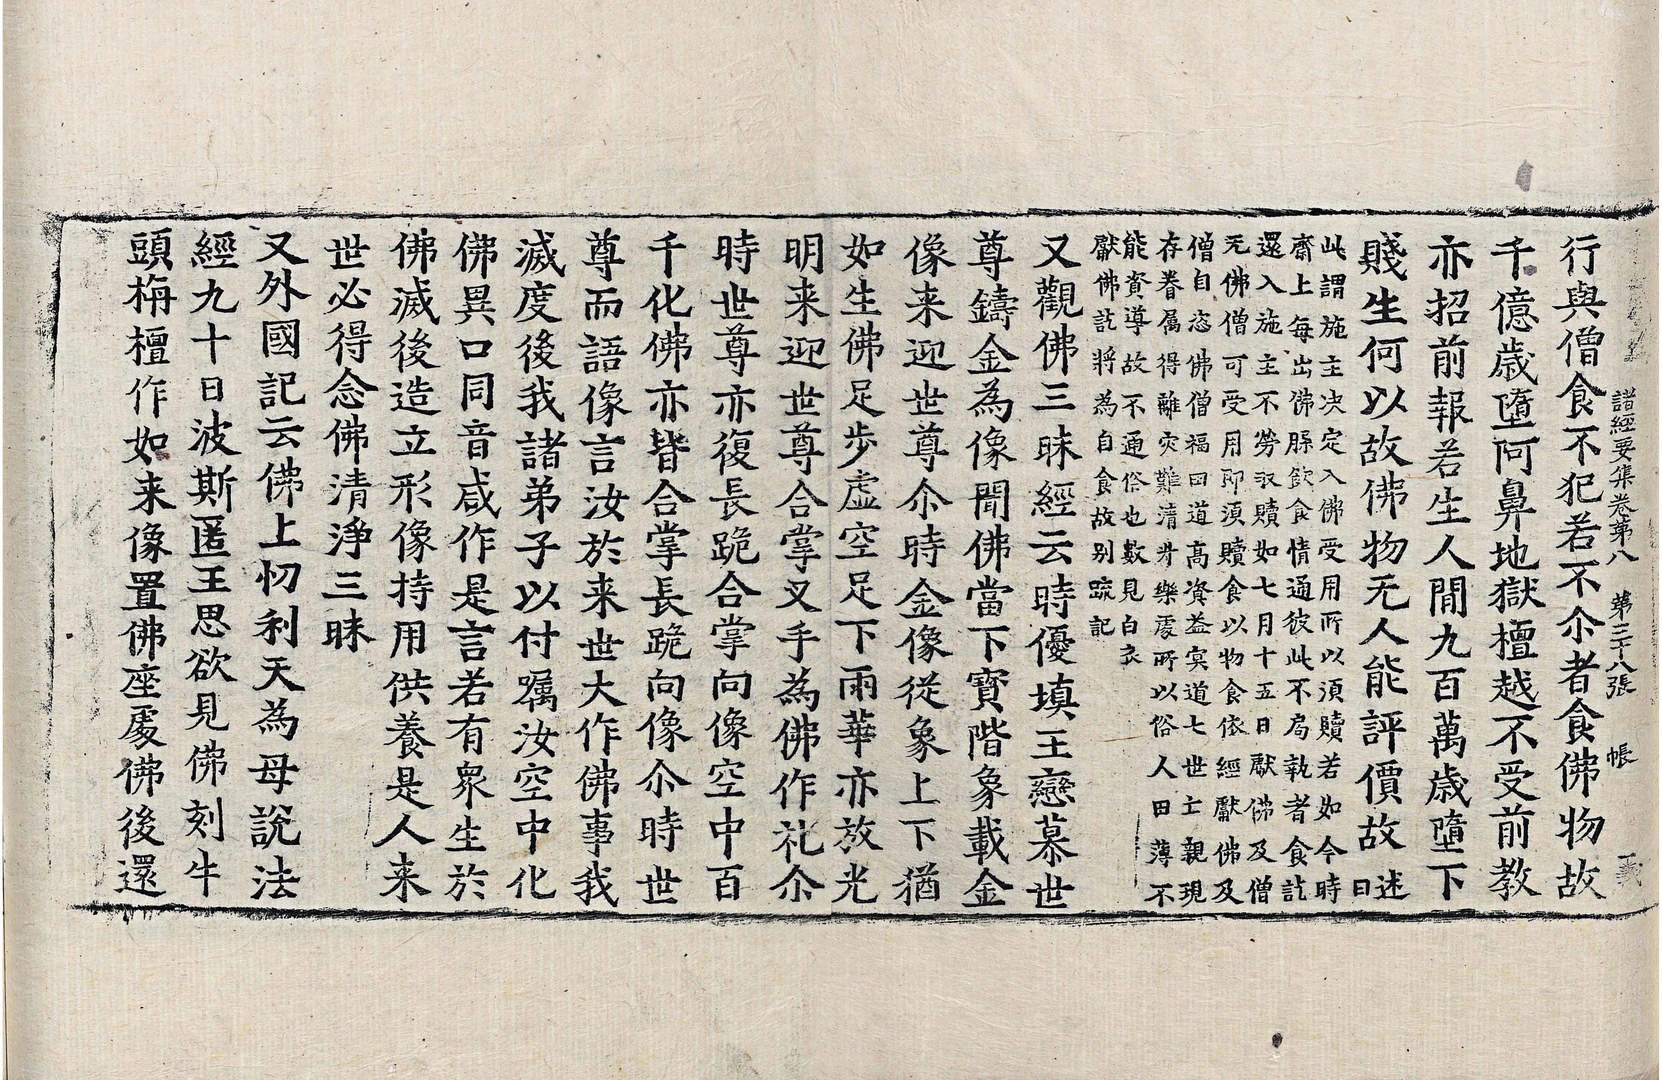 諸經要集卷第八　第三十八張　帳
行與僧食不犯若不尒者食佛物故
千億歲墮阿鼻地獄檀越不受前教
亦招前報若生人閒九百萬歲墮下
賤生何以故佛物无人能評價故述曰
此謂施主决定入佛受用所以須贖若如今時
齋上每出佛膝飲食情通彼此不局執者食訖
還入施主不勞收贖如七月十五日獻佛及僧
无佛僧可受用即須贖食以物食依經獻佛及
僧自恣佛僧福田道高資益冥道七世亡親現
存眷属得離灾難清昇樂處所以俗人田薄不
能資導故不通俗也數見白衣
獻佛訖將為自食故别䟽記
又觀佛三昧經云時優填王戀慕世
尊鑄金為像聞佛當下寶階象載金
像来迎世尊尒時金像從象上下猶
如生佛足步虛空足下雨華亦放光
明来迎世尊合掌叉手為佛作礼尒
時世尊亦復長跪合掌向像空中百
千化佛亦皆合掌長跪向像尒時世
尊而語像言汝於来世大作佛事我
滅度後我諸弟子以付囑汝空中化
佛異口同音咸作是言若有衆生於
佛滅後造立形像持用供養是人来
世必得念佛清淨三昧
又外國記云佛上忉利天為母說法
經九十日波斯匿王思欲見佛刻牛
頭栴檀作如来像置佛座處佛後還